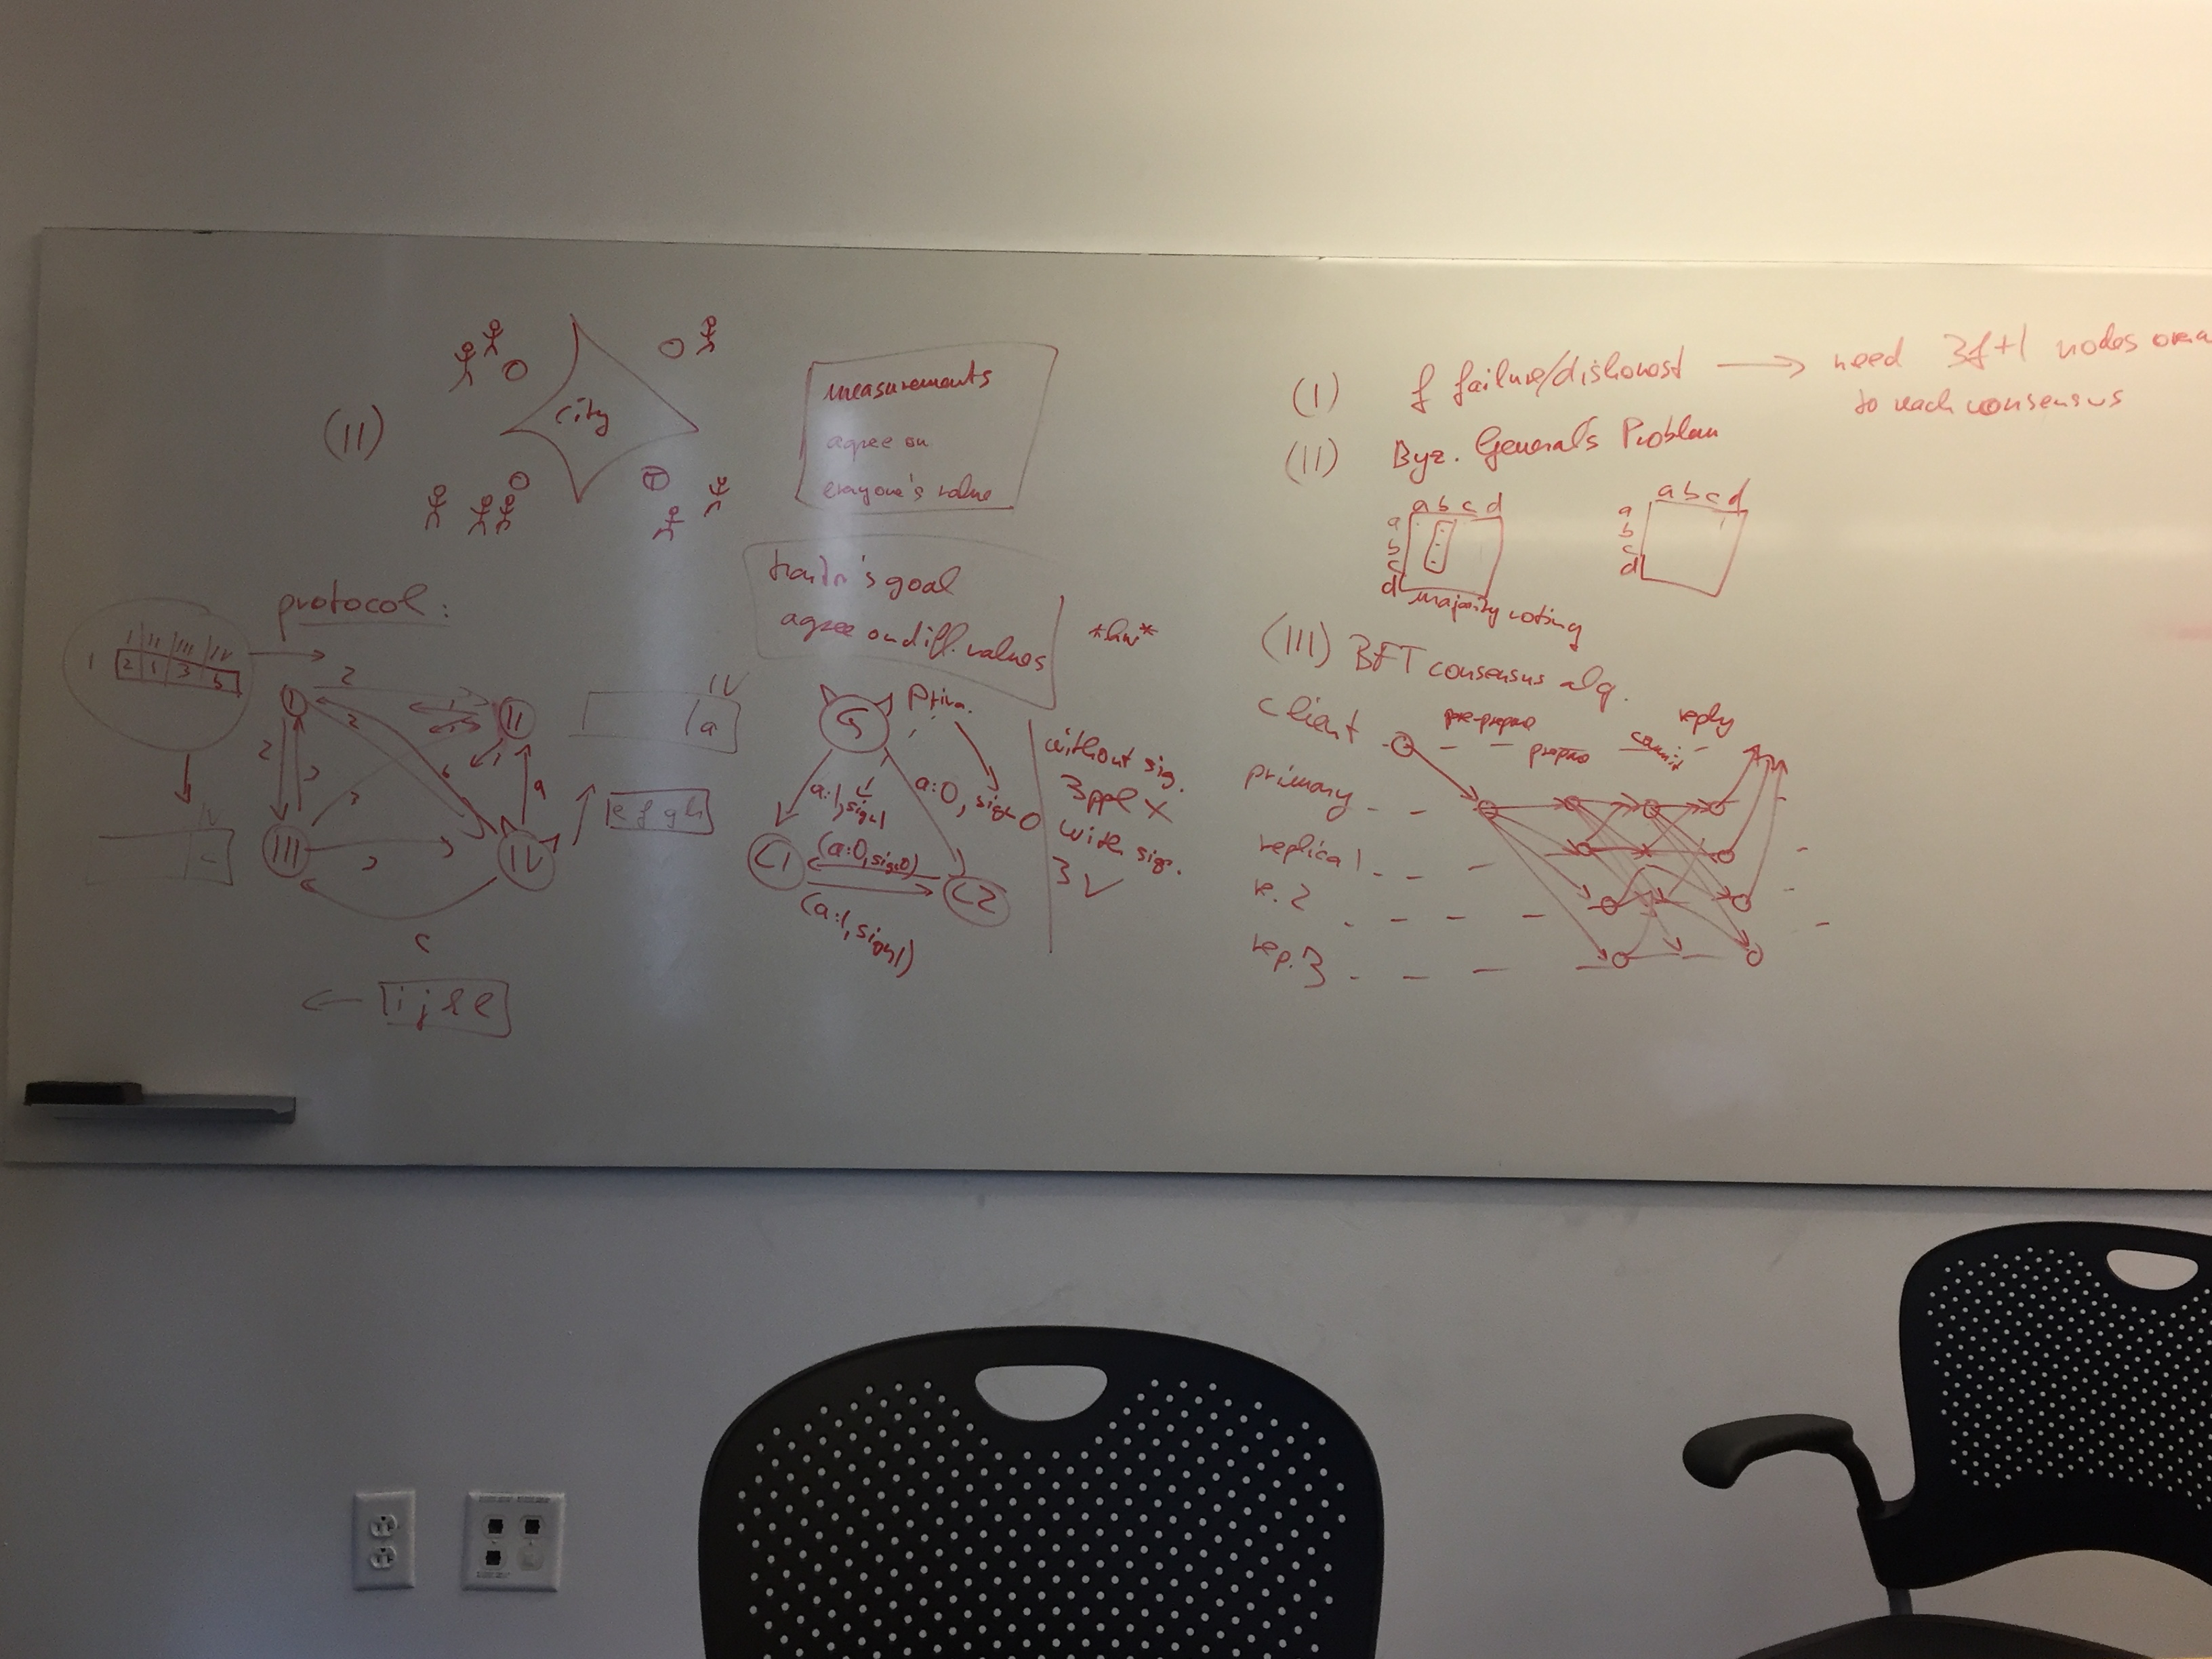 (II)
city
measurements
agree on
everyone's value
traitor's goal
agree on diff. values
*hw*
protocol:
I II III IV
I 2 1 3 b
I
II
III
IV
2
2
2
3
3
3
1
1
b
a
c
IV
a
e f g h
IV
c
i j k l
G
a:1, sign1
a:0, sign0
C1
C2
(a:0, sign0)
(a:1, sign1)
without sig.
3ppl X
with sig.
3 ✓
(I) f failure/dishonest → need 3f+1 nodes
to reach consensus
(II) Byz. General's Problem
a b c d
a
b
c
d
majority voting
a b c d
a
b
c
d
(III) BFT consensus alg.
client
pre-prepare
prepare
commit
reply
primary
replica 1
re. 2
rep. 3